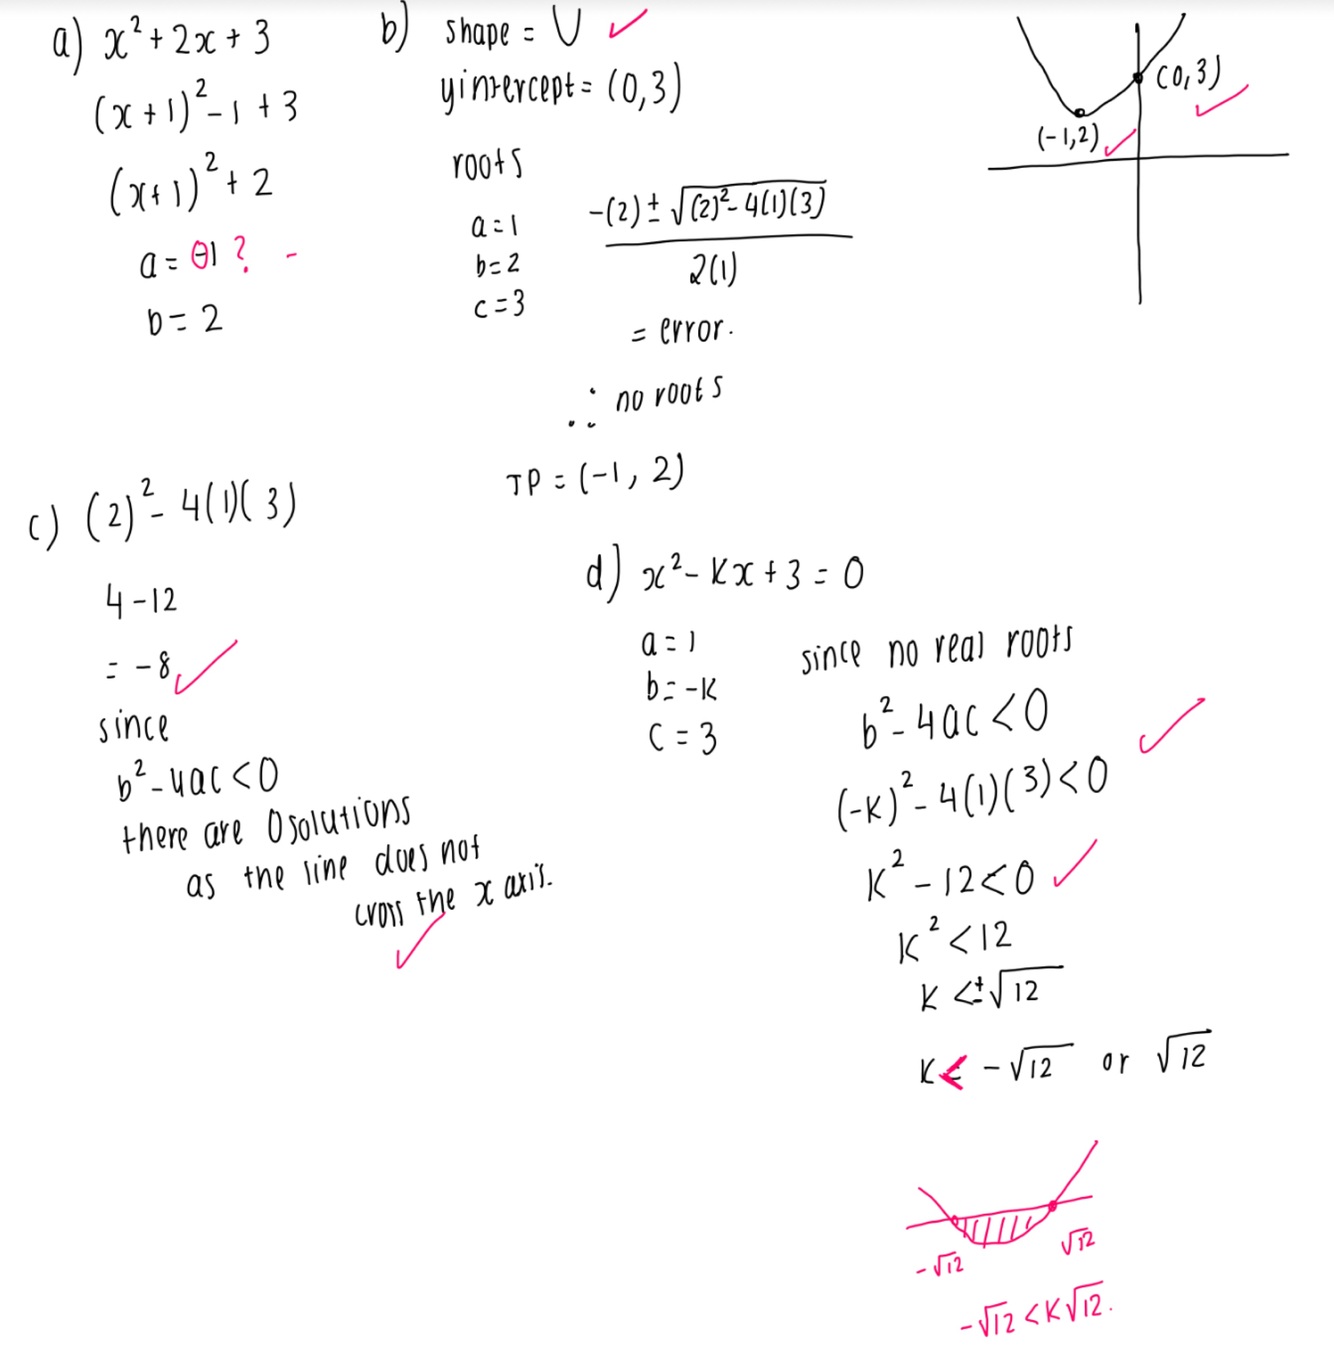 a) x² + 2x + 3
(x + 1)² - 1 + 3
(x + 1)² + 2
a = 1 ? -
b = 2
b) shape = U ✓
yintercept = (0,3)
roots
a = 1
b = 2
c = 3
-(2) ± √(2)² - 4(1)(3)
2(1)
= error.
∴ no roots
TP = (-1, 2)
(0,3) ✓
(-1,2) ✓
c) (2)² - 4(1)(3)
4 - 12
= -8 ✓
since
b² - 4ac < 0
there are 0 solutions
as the line does not
cross the x axis.
✓
d) x² - Kx + 3 = 0
a = 1
b = -K
c = 3
since no real roots
b² - 4ac < 0 ✓
(-K)² - 4(1)(3) < 0
K² - 12 < 0 ✓
K² < 12
K < ± √12
K < - √12 or √12
-√12
√12
-√12 < K √12.